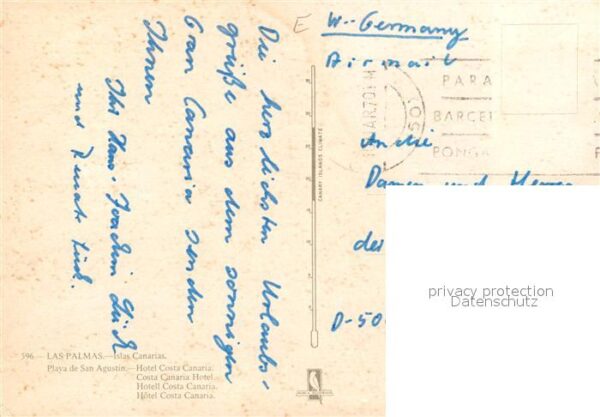 Die herzlichsten Urlaubs-
grüße aus dem sonnigen
Gran Canaria senden
Ihnen
Ihr Hans-Joachim Lück
und Renate Lück.
E
W-Germany
Airmail
PARA
BARCEL
PONGA
An die
Damen und Herren
der
D-50
CANARY ISLANDS CLIMATE
privacy protection
Datenschutz
596 — LAS PALMAS.—Islas Canarias.
Playa de San Agustín.—Hotel Costa Canaria.
Costa Canaria Hotel.
Hotell Costa Canaria.
Hôtel Costa Canaria.